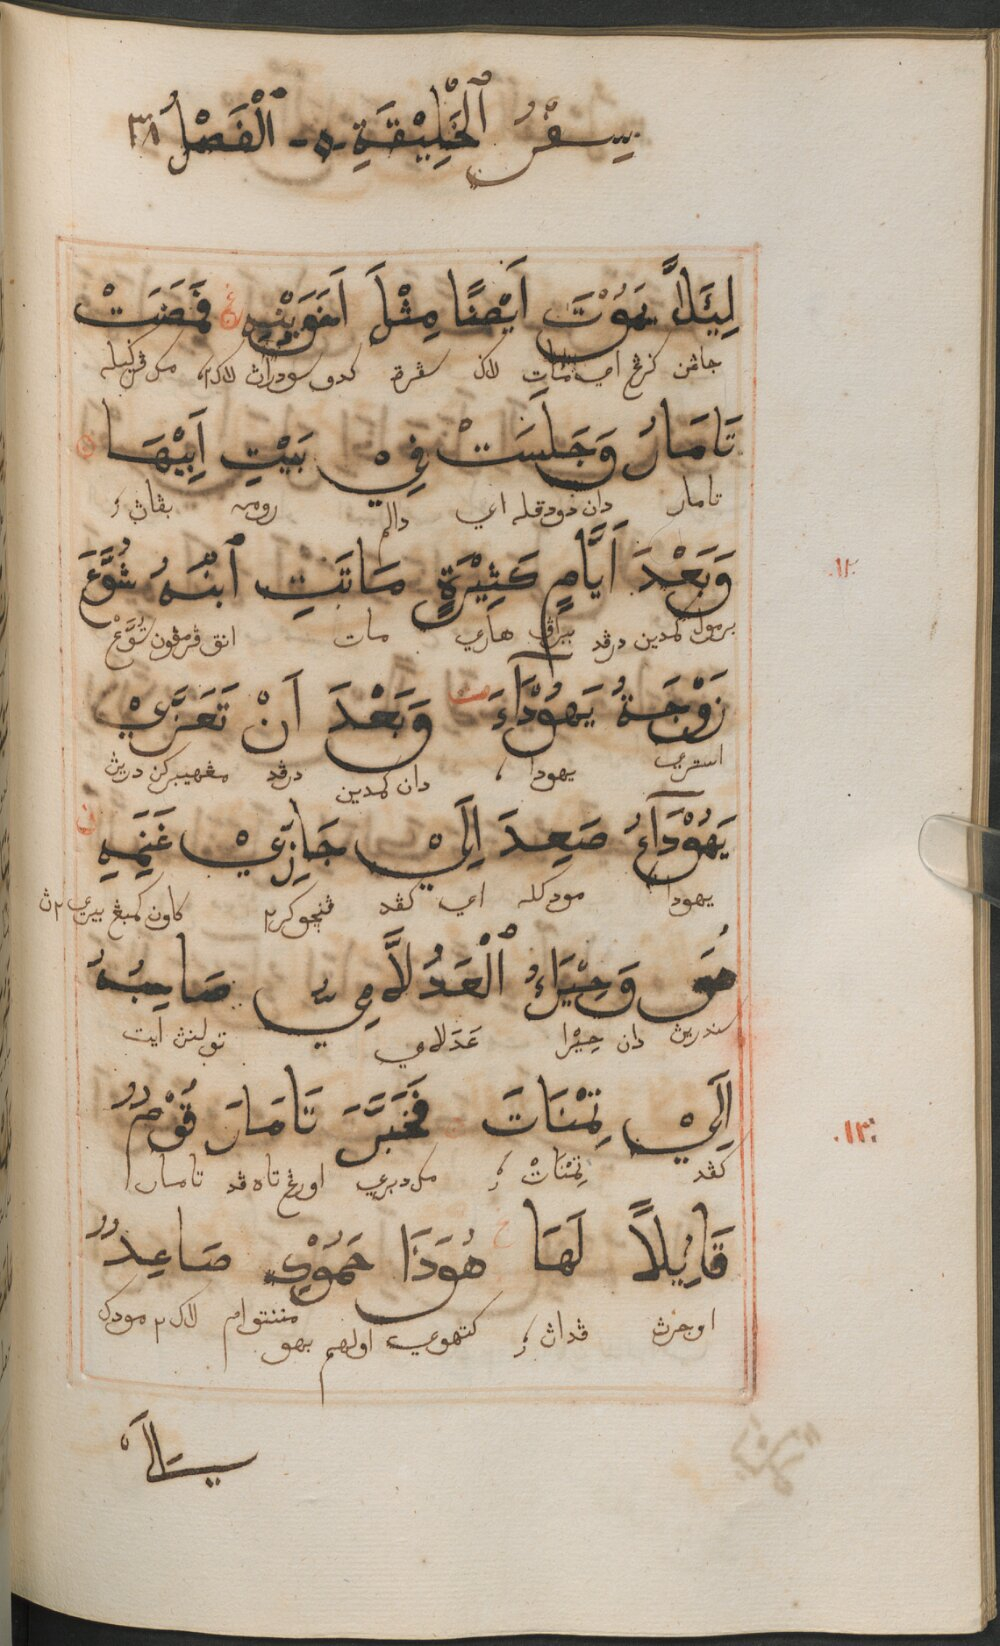 سِفْرُ ٱلْخَلِيْقَةِ - ٱلْفَصْلُ ٣٨
لِيَلَّا يَمُوْتَ اَيْضًا مِثْلَ اَخَوَيْهِ فَمَضَتْ
جاڠن كرڠ اي مات لاݢ سڤرت كدو سودراڽ لاك٢ مک ڤرݢيله
تَامَارُ وَجَلَسَتْ فِيْ بَيْتِ اَبِيْهَا
تامار دان دودقله اي دالم رومه بڤاڽ
١٢
وَبَعْدَ اَيَّامٍ كَثِيْرَةٍ مَاتَتِ ٱبْنَهُ شُوَّعَ
برمول كمدين درڤد هاري مات انق ڤرمڤون شُوَّعْ
زَوْجَةُ يَهُوْدَآءَ وَبَعْدَ اَنْ تَعَزَّيْ
استري يهودا دان كمدين درڤد مڠهيبركن ديريڽ
يَهُوْدَآءُ صَعِدَ اِلَيْ جَازِّيْ غَنَمِهِ
يهودا مودكله اي كڤد ڤڠچوكر٢ كاون كمبڠ بيري٢ڽ
هُوَ وَحِيْرَاءُ ٱلْعَدُلَّامِيُّ صَاحِبُهُ
سنديريڽ دان حِيْرا عَدَلامي تولنڽ ايت
اِلَيْ تِمْنَاتَ فَخَبَّرَ تَامَارَ قَوْمٌ
كڤد تِمْنَاتْ مک دبري اورڠ تاه ڤد تامار
١٣
قَاِيلاً لَهَا هُوَذَا حَمُوْكِ صَاعِدٌ
اوجرڽ ڤداڽ كتهوي اولهم بهو مننتوام لاك٢ مودک